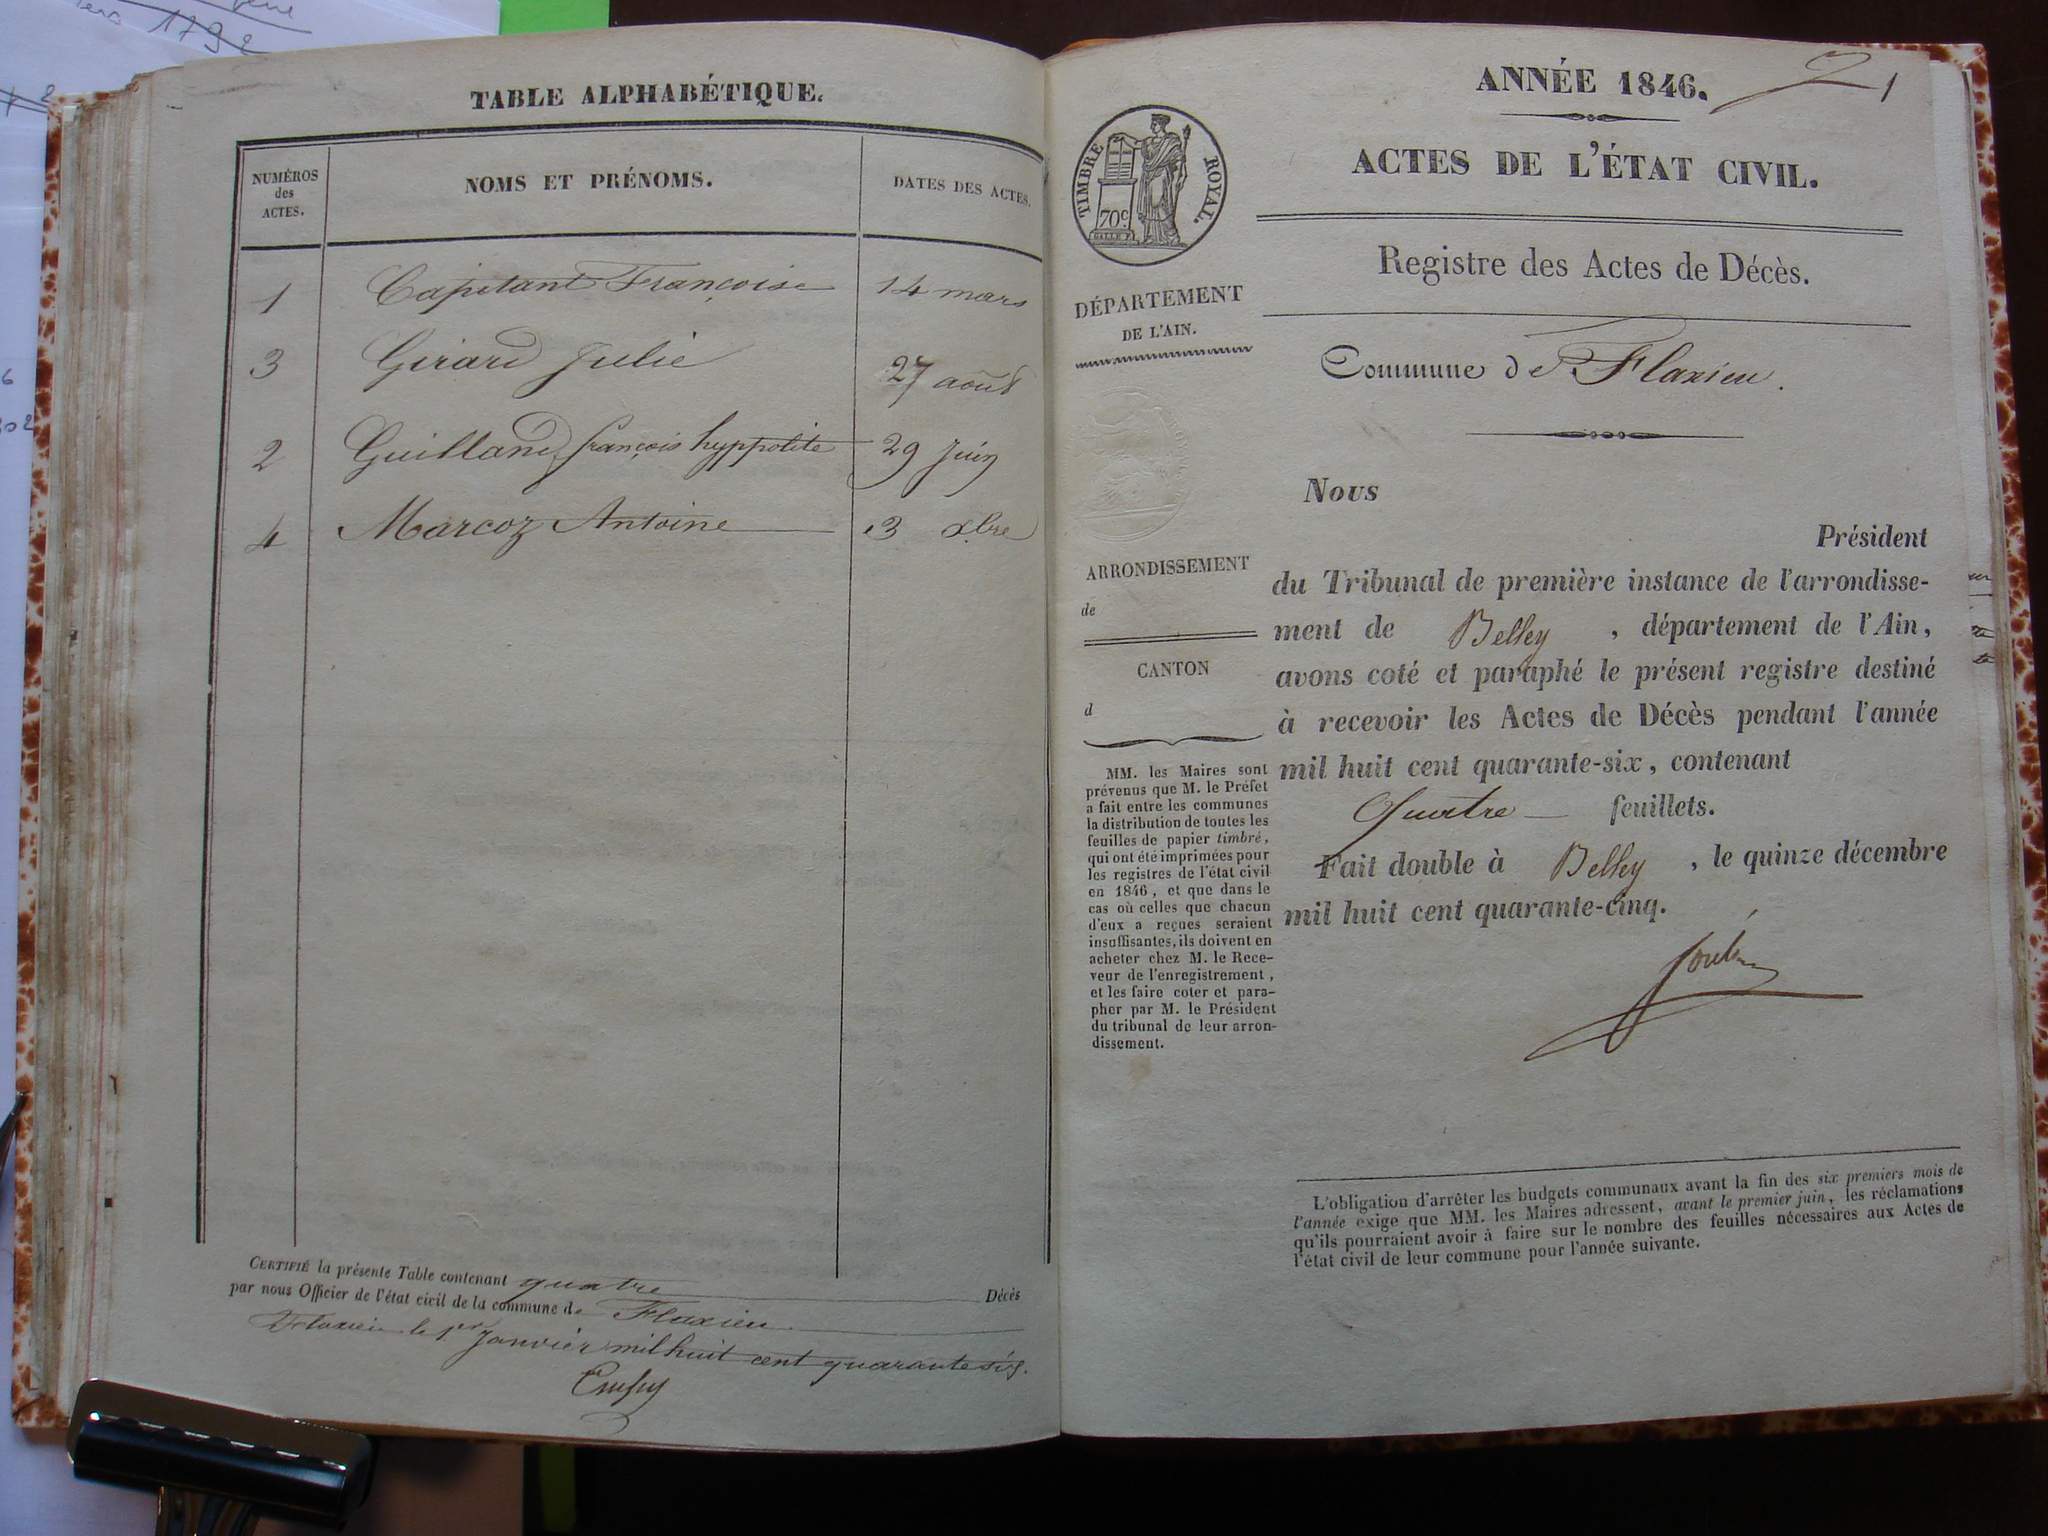 1792
TABLE ALPHABÉTIQUE.
NUMÉROS
des
ACTES.
NOMS ET PRÉNOMS.
DATES DES ACTES.
1 Capitant Françoise 14 mars
3 Girard Julie 27 août
2 Guilland françois hyppolite 29 Juin
4 Marcoz Antoine 3 xbre
CERTIFIÉ la présente Table contenant quatre Décès
par nous Officier de l'état civil de la commune de Flaxieu
le 1er Janvier mil huit cent quarante six.
ANNÉE 1846.
1
ACTES DE L'ÉTAT CIVIL.
TIMBRE ROYAL.
70c
Registre des Actes de Décès.
DÉPARTEMENT
DE L'AIN.
Commune de Flaxieu.
Nous
Président
du Tribunal de première instance de l'arrondisse-
ment de Belley, département de l'Ain,
avons coté et paraphé le présent registre destiné
à recevoir les Actes de Décès pendant l'année
mil huit cent quarante-six, contenant
Quatre feuillets.
Fait double à Belley, le quinze décembre
mil huit cent quarante-cinq.
ARRONDISSEMENT
de
CANTON
d
MM. les Maires sont
prévenus que M. le Préfet
a fait entre les communes
la distribution de toutes les
feuilles de papier timbré,
qui ont été imprimées pour
les registres de l'état civil
en 1846, et que dans le
cas où celles que chacun
d'eux a reçues seraient
insuffisantes, ils doivent en
acheter chez M. le Rece-
veur de l'enregistrement,
et les faire coter et para-
pher par M. le Président
du tribunal de leur arron-
dissement.
L'obligation d'arrêter les budgets communaux avant la fin des six premiers mois de
l'année exige que MM. les Maires adressent, avant le premier juin, les réclamations
qu'ils pourraient avoir à faire sur le nombre des feuilles nécessaires aux Actes de
l'état civil de leur commune pour l'année suivante.